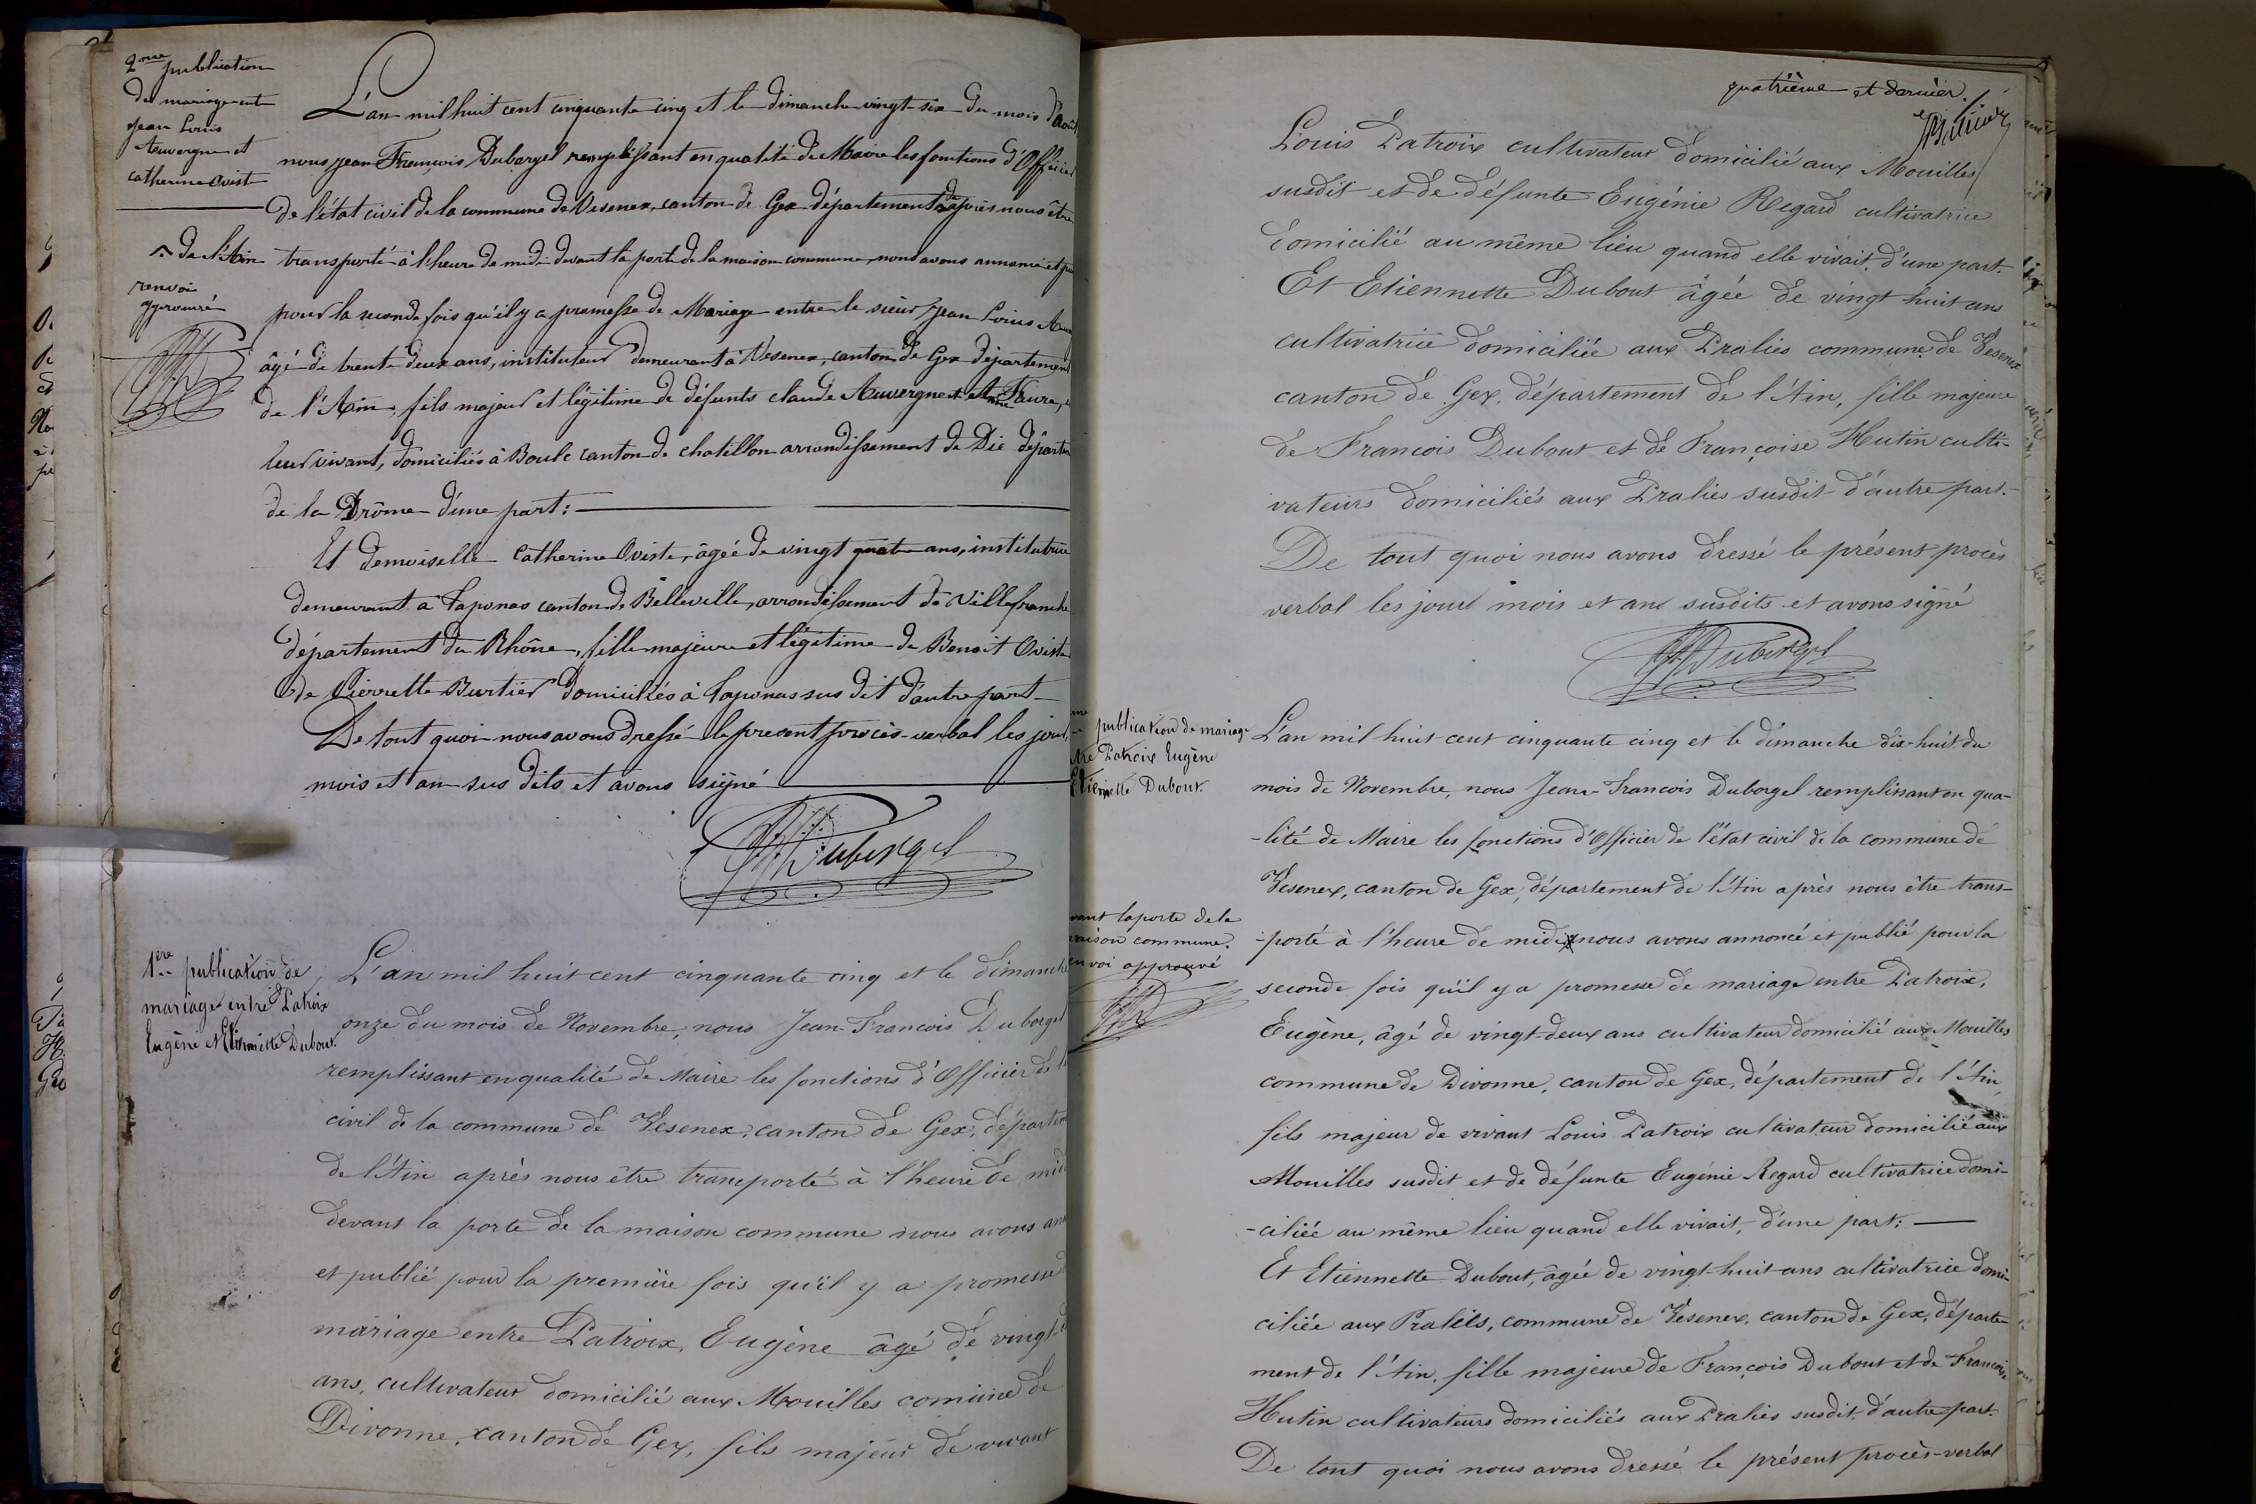 2me publication
de mariage entre
Jean Louis
Auvergne et
Catherine Oviste
L'an mil huit cent cinquante cinq et le dimanche vingt-six du mois d'Août
nous Jean François Duborgel remplissant en qualité de Maire les fonctions d'Officier
de l'état civil de la commune de Vesenex, canton de Gex département après nous être
de l'Ain
renvoi
approuvé
transporté à l'heure de midi devant la porte de la maison commune, nous avons annoncé et
pour la seconde fois qu'il y a promesse de Mariage entre le sieur Jean Louis
âgé de trente deux ans, instituteur demeurant à Vesenex, canton de Gex département
de l'Ain, fils majeur et légitime de défunts Claude Auvergne et Faure,
leur vivant, domiciliés à Boulc canton de Chatillon arrondissement de Die
de la Drôme d'une part:
Et demoiselle Catherine Oviste, âgée de vingt quatre ans, institutrice
demeurant à Taponas canton de Belleville, arrondissement de Villefranche
département du Rhône, fille majeure et légitime de Benoit Oviste
de Pierrette Burtier domiciliés à Taponas sus dit d'autre part
De tout quoi nous avons dressé le present procès-verbal les jour,
mois et an sus dits et avons signé
Duborgel
1ère publication de
mariage entre Patroix
Eugène et Etiennette Dubout.
L'an mil huit cent cinquante cinq et le dimanche
onze du mois de Novembre, nous Jean-François Duborgel
remplissant en qualité de Maire les fonctions d'Officier de
civil de la commune de Vesenex, canton de Gex,
de l'Ain après nous être transporté à l'heure de midi
devant la porte de la maison commune nous avons
et publié pour la première fois qu'il y a promesse
mariage entre Patroix, Eugène âgé de vingt
ans, cultivateur domicilié aux Mouilles comune de
Divonne, canton de Gex, fils majeur de vivant
quatrième et dernier.
Louis Patroix cultivateur domicilié aux Mouilles
susdit et de défunte Eugénie Regard cultivatrice
domicilié au même lieu quand elle vivait, d'une part.
Et Etiennette Dubout âgée de vingt huit ans
cultivatrice domiciliée aux Pralies commune de Vesenex
canton de Gex, département de l'Ain, fille majeure
de François Dubout et de Françoise Hutin culti-
vateurs domiciliés aux Pralies susdit d'autre part.
De tout quoi nous avons dressé le présent procès
verbal les jour mois et an susdits et avons signé
Duborgel
publication de mariage
Patroix Eugène
Etiennette Dubout.
L'an mil huit cent cinquante cinq et le dimanche dix-huit du
mois de Novembre, nous Jean-François Duborgel remplissant en qua-
-lité de Maire les fonctions d'Officier de l'état civil de la commune de
Vesenex, canton de Gex, département de l'Ain après nous être trans-
vant la porte de la
maison commune.
renvoi approuvé
-porté à l'heure de midi nous avons annoncé et publié pour la
seconde fois qu'il y a promesse de mariage entre Patroix,
Eugène, âgé de vingt-deux ans cultivateur domicilié aux Mouilles
commune de Divonne, canton de Gex, département de l'Ain,
fils majeur de vivant Louis Patroix cultivateur domicilié aux
Mouilles susdit et de défunte Eugénie Regard cultivatrice domi-
-ciliée au même lieu quand elle vivait, d'une part:
Et Etiennette Dubout, âgée de vingt-huit ans cultivatrice domi-
ciliée aux Pralies, commune de Vesenex, canton de Gex, départe-
ment de l'Ain, fille majeure de François Dubout et de Françoise
Hutin cultivateurs domiciliés aux Pralies susdit, d'autre part.
De tout quoi nous avons dressé le présent procès-verbal